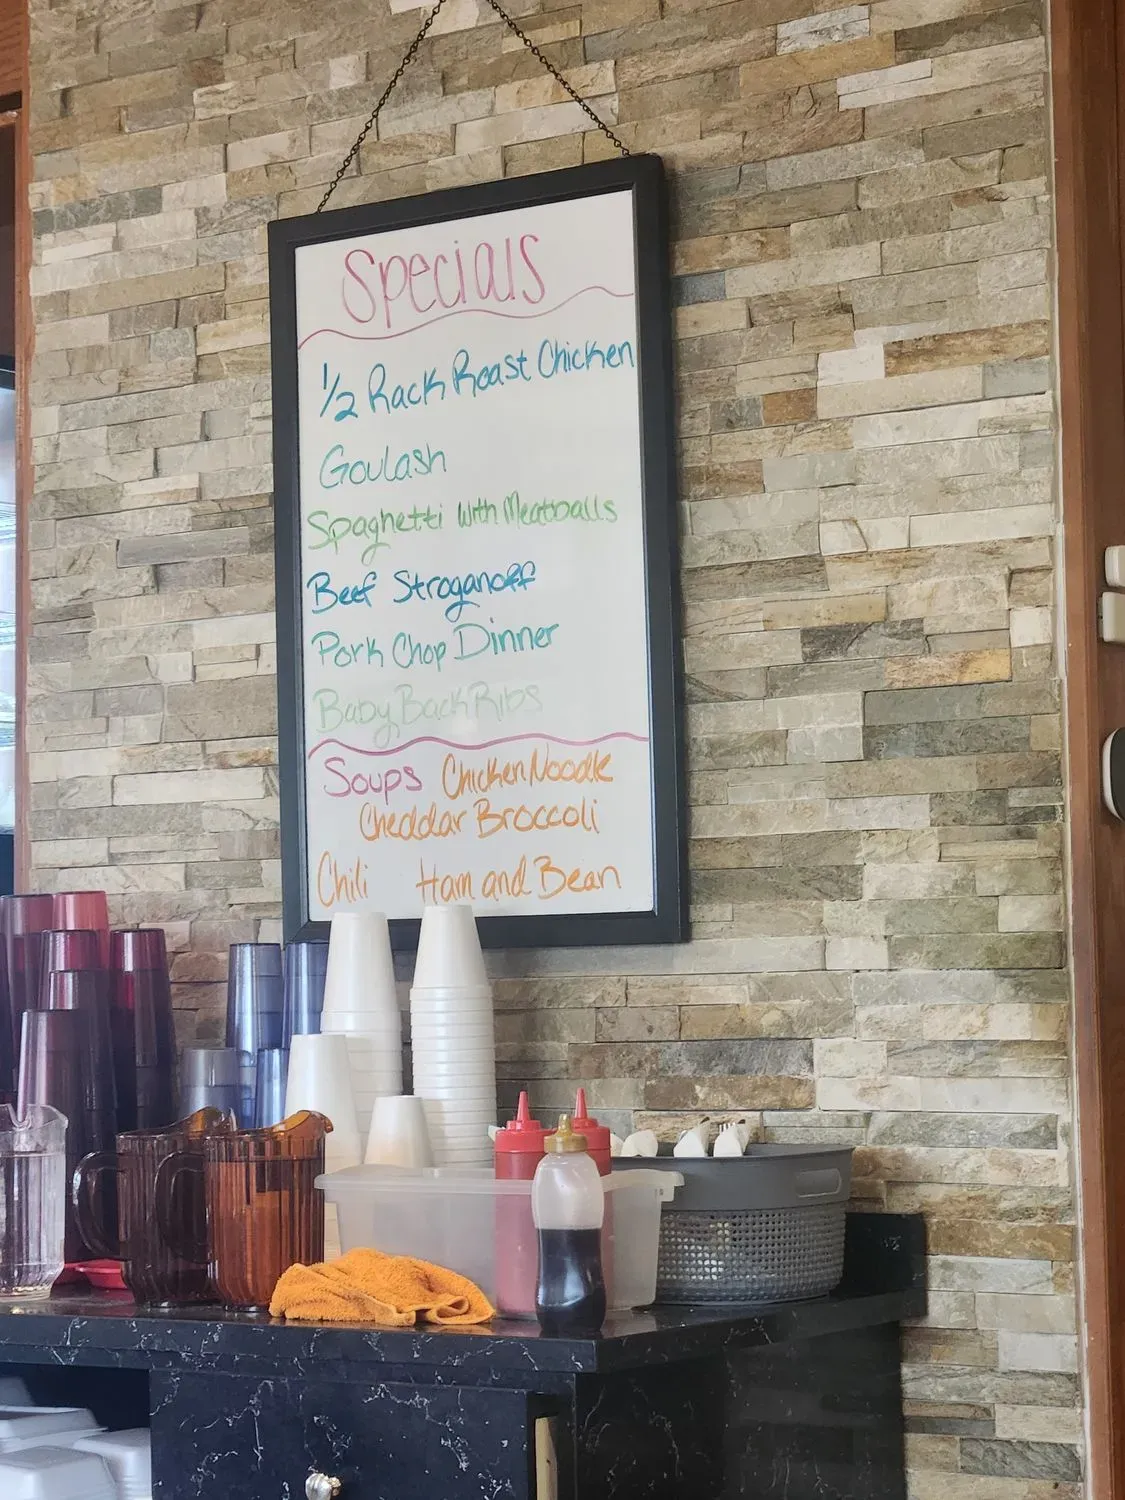 Specials
1/2 Rack Roast Chicken
Goulash
Spaghetti with Meatballs
Beef Stroganoff
Pork Chop Dinner
Baby Back Ribs
Soups Chicken Noodle
Cheddar Broccoli
Chili Ham and Bean